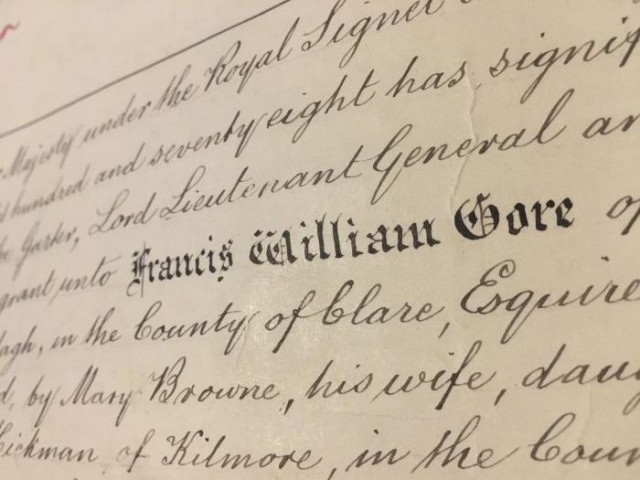 Majesty under the Royal Signet
hundred and seventy eight has signif
Garter, Lord Lieutenant General an
grant unto Francis William Gore of
agh, in the County of Clare, Esquire
d, by Mary Browne, his wife, daug
Hickman of Kilmore, in the Coun